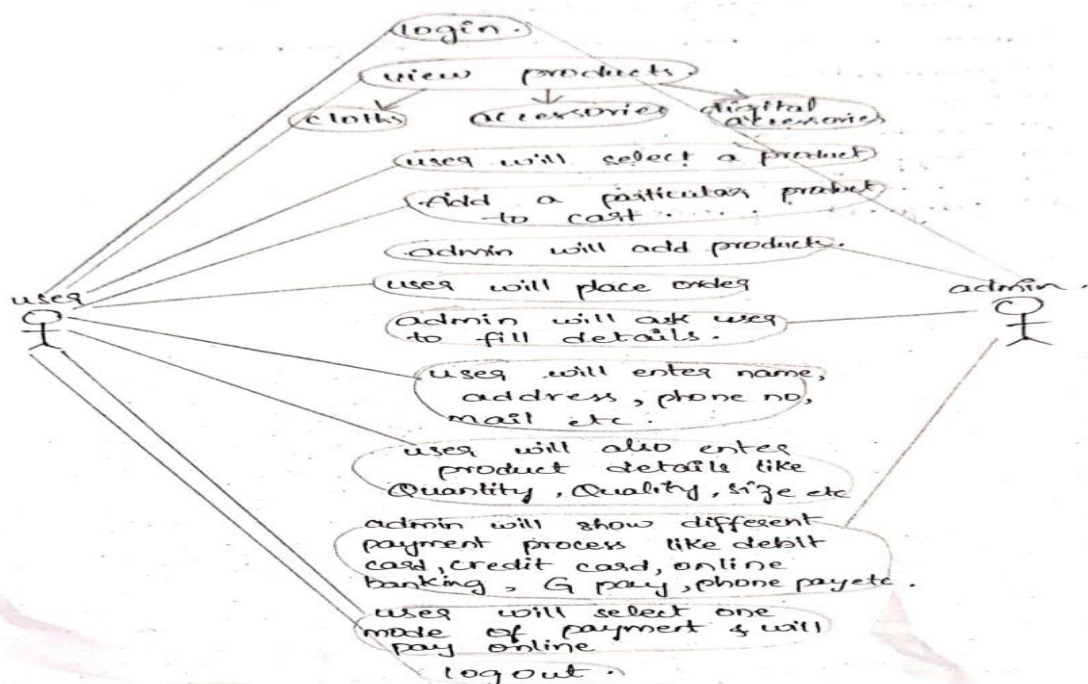 login.
view products.
cloths accessories digital
accessories
user will select a product
Add a particular product
to cart
admin will add products.
user admin.
user will place order
admin will ask user
to fill details.
user will enter name,
address, phone no,
mail etc.
user will also enter
product details like
Quantity, Quality, size etc
admin will show different
payment process like debit
card, credit card, online
banking, G pay, phone pay etc.
user will select one
mode of payment & will
pay online
logout.